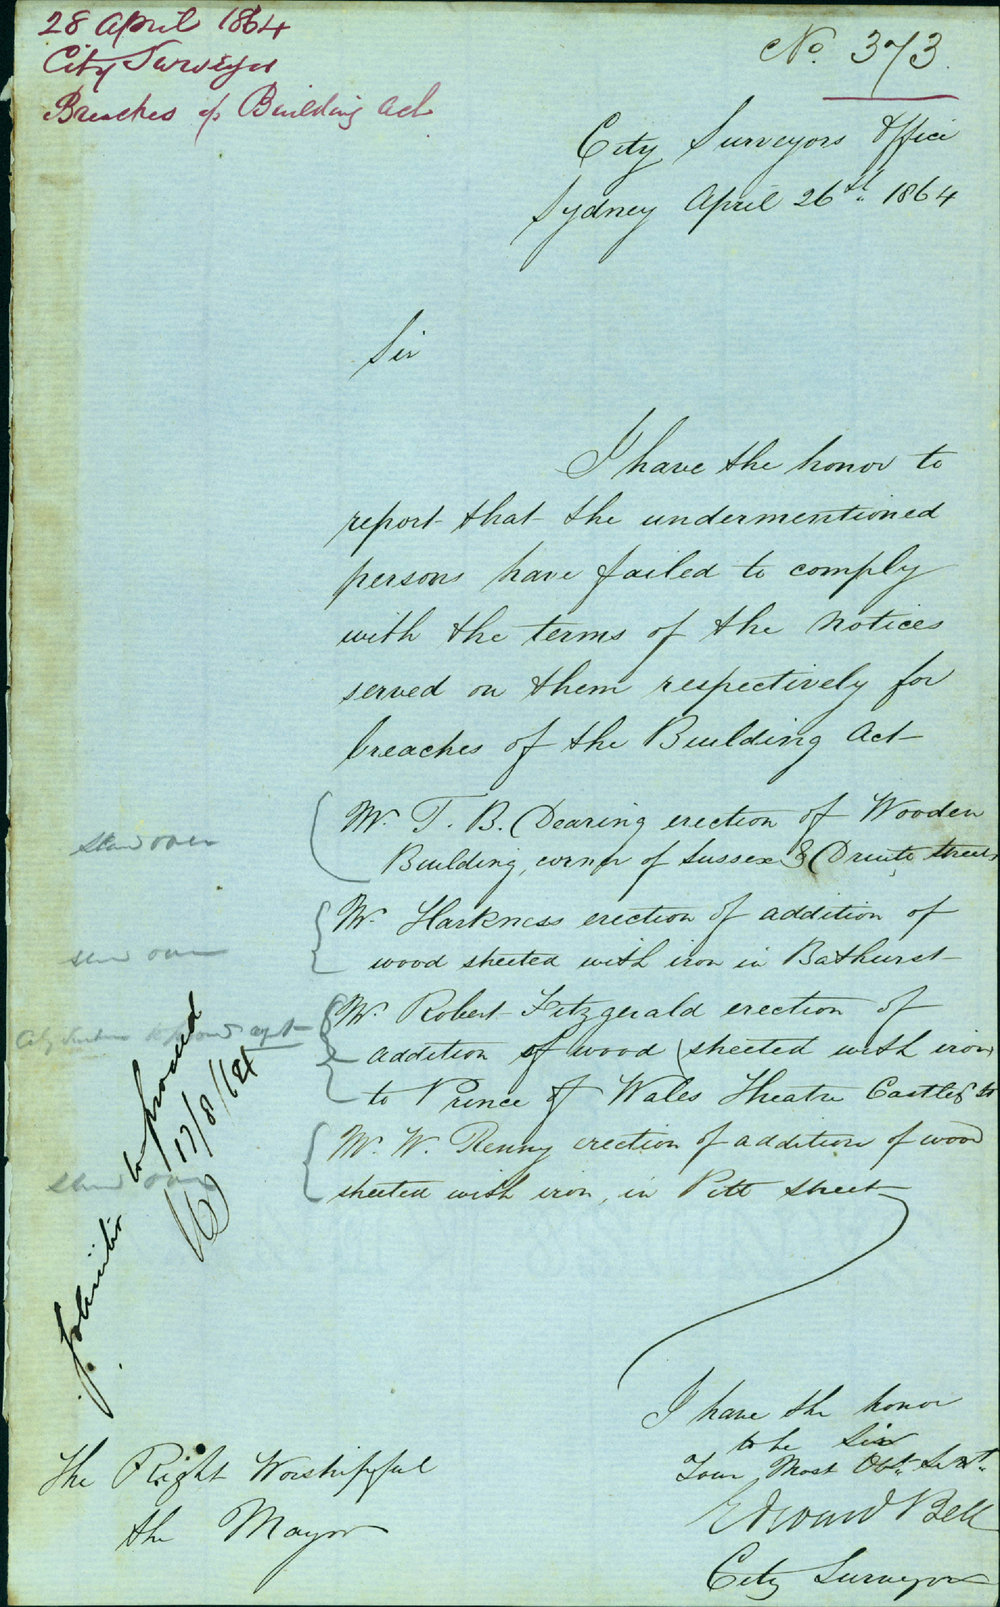 28 April 1864
City Surveyor
Breaches of Building Act
No. 373.
City Surveyors Office
Sydney April 26th. 1864
Sir
I have the honor to
report that the undermentioned
persons have failed to comply
with the terms of the notices
served on them respectively for
breaches of the Building Act
Mr. T. B. Dearing erection of Wooden
Building, corner of Sussex & Druitt streets
stand over
Mr. Harkness erection of addition of
wood sheeted with iron in Bathurst
stand over
Mr. Robert Fitzgerald erection of
addition of wood (sheeted with iron)
to Prince of Wales Theatre Castlef St
City Solicitor to proceed agst
Mr. W. Renny erection of addition of wood
sheeted with iron, in Pitt street
stand over
Solicitor to proceed
17/8/64
I have the honor
to be Sir
Your Most Obt. Servt.
Edward Bell
City Surveyor
The Right Worshipful
the Mayor